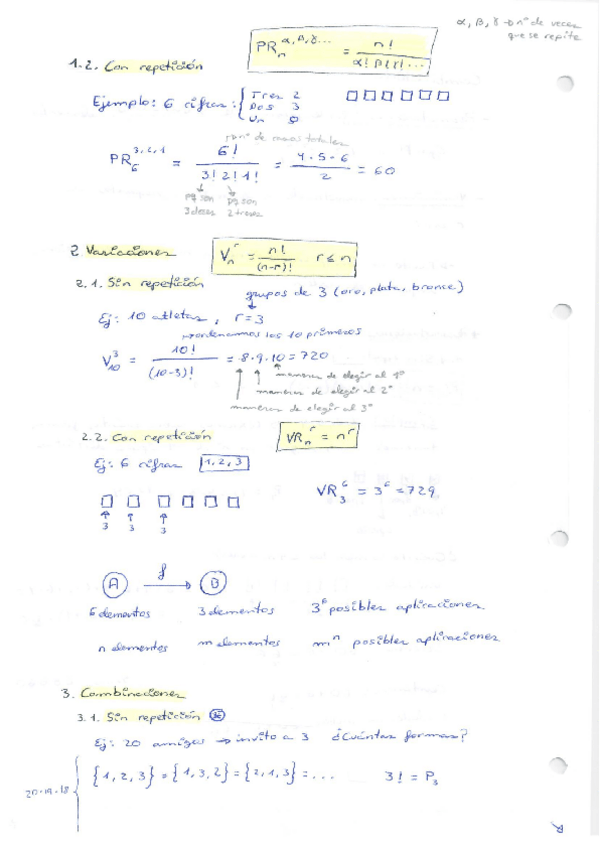 α, β, γ → nº de veces
que se repite
PR_n^{α, β, γ...} = n! / α! β! γ! ...
1.2. Con repetición
Ejemplo: 6 cifras: { Tres 2
Dos 3
Un
nº de casos totales
PR_6^{3,2,1} = 6! / 3! 2! 1! = 4 · 5 · 6 / 2 = 60
pq son pq son
3 doses 2 treses
2 Variaciones V_n^r = n! / (n-r)! r ≤ n
2.1. Sin repetición
grupos de 3 (oro, plata, bronce)
Ej: 10 atletas, r = 3
ordenamos los 10 primeros
V_10^3 = 10! / (10-3)! = 8 · 9 · 10 = 720
maneras de elegir al 1º
maneras de elegir al 2º
maneras de elegir al 3º
2.2. Con repetición VR_n^r = n^r
Ej: 6 cifras 1, 2, 3
VR_3^6 = 3^6 = 729
3 3 3
A f → B
6 elementos 3 elementos 3^6 posibles aplicaciones
n elementos m elementos m^n posibles aplicaciones
3. Combinaciones
3.1. Sin repetición
Ej: 20 amigos → invito a 3 ¿Cuántas formas?
{1, 2, 3} = {1, 3, 2} = {2, 1, 3} = ... 3! = P_3
20·19·18